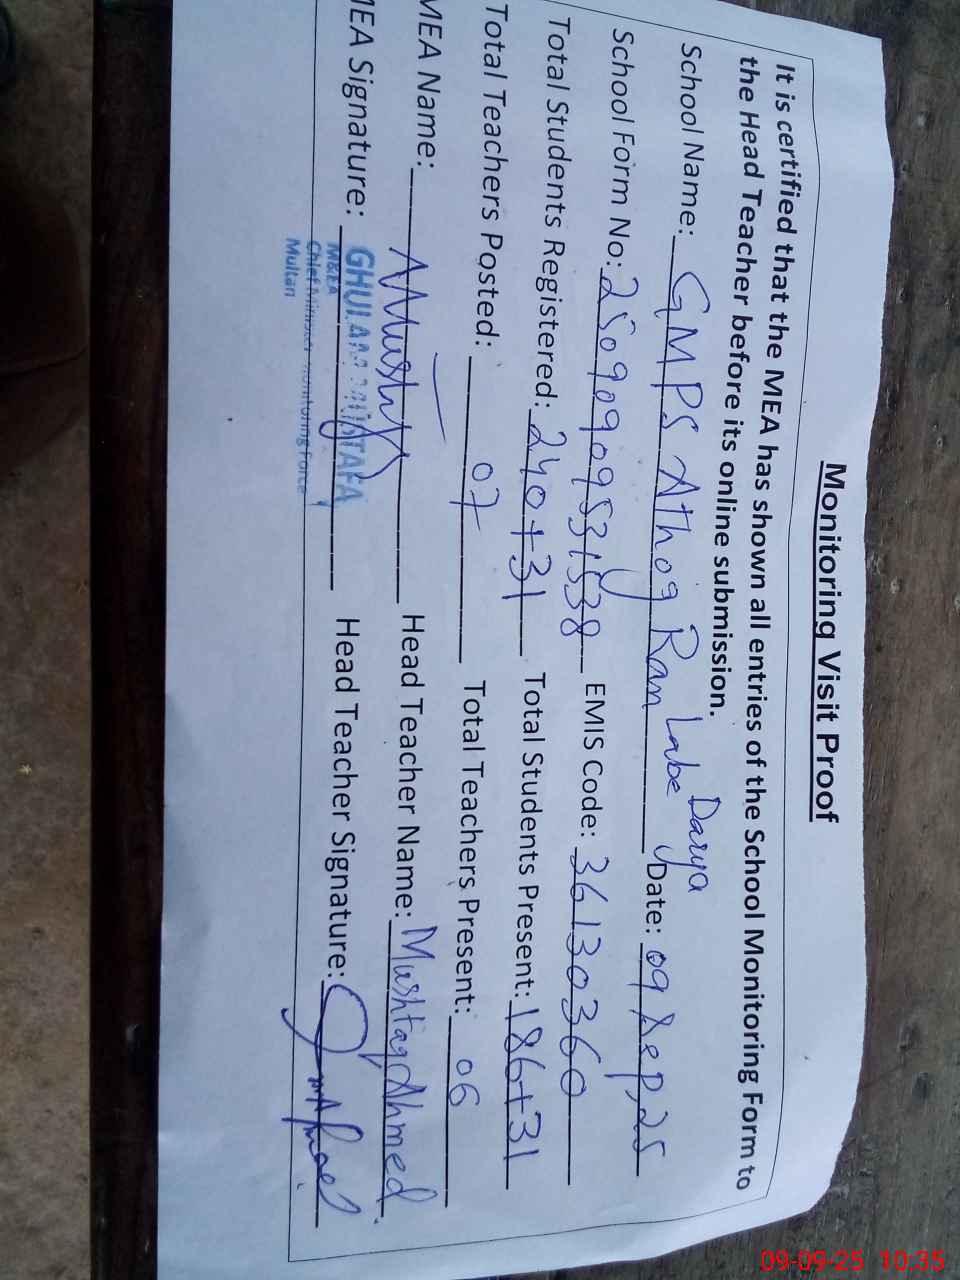 Monitoring Visit Proof
It is certified that the MEA has shown all entries of the School Monitoring Form to
the Head Teacher before its online submission.
School Name: GMPS Athog Ran Labe Darya Date: 09 Sep, 25
School Form No: 25090909531538 EMIS Code: 36130360
Total Students Registered: 240+31 Total Students Present: 186+31
Total Teachers Posted: 07 Total Teachers Present: 06
MEA Name: Head Teacher Name: Mushtaq Ahmed
MEA Signature: Head Teacher Signature:
GHULAM MUSTAFA
M&EA
Chief Minister Monitoring Force
Multan
09-09-25 10:35